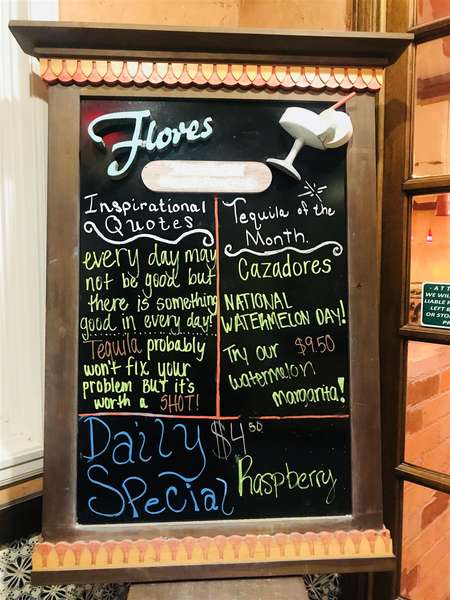 Flores
Inspirational
Quotes
every day may
not be good but
there is something
good in every day!
Tequila probably
won't fix your
problem BUT it's
worth a SHOT!
Tequila of the
Month.
Cazadores
NATIONAL
WATERMELON DAY!
Try our $9.50
watermelon
margarita!
Daily $4.50
Special Raspberry
- ATT
WE WILL
LIABLE F
LEFT B
OR STO
PR